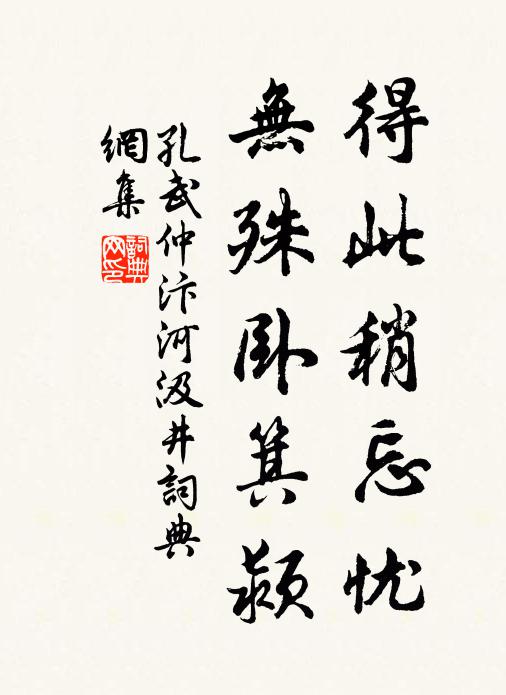 得此稍忘忧
無殊卧箕潁
孔武仲汴河汲井詞典
網集
詞典
网印